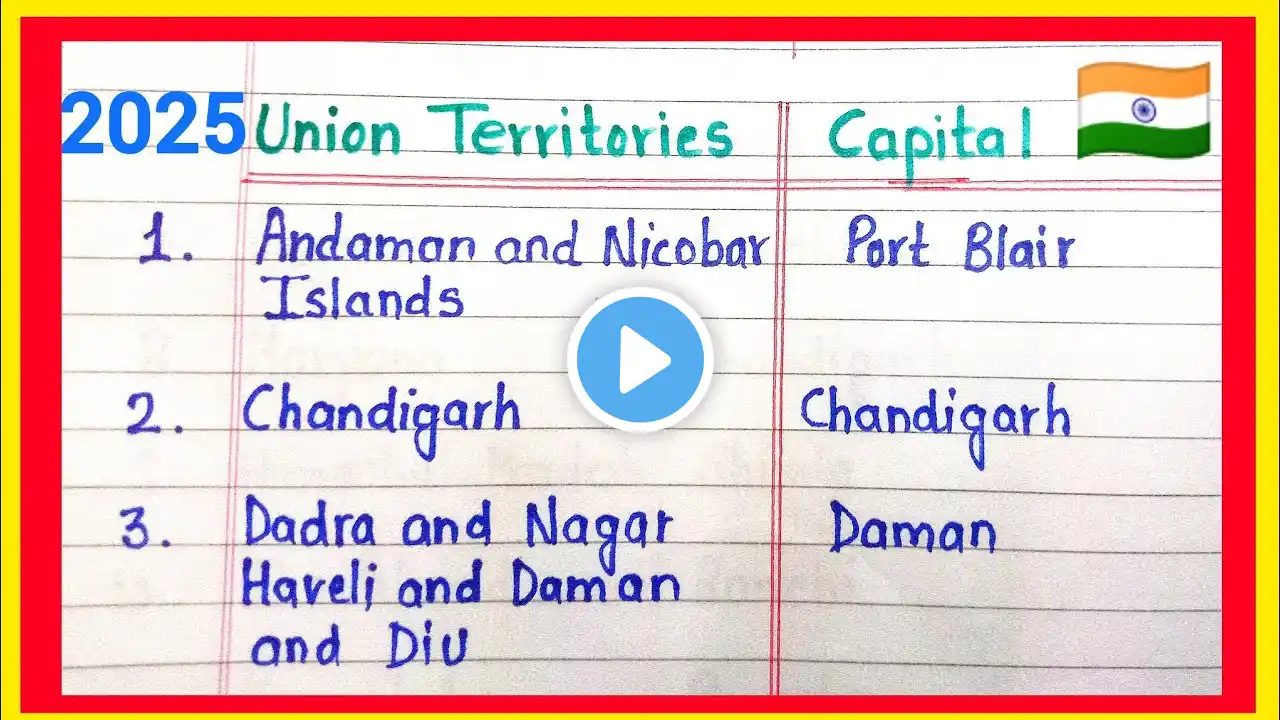 2025 Union Territories Capital
1. Andaman and Nicobar Port Blair
Islands
2. Chandigarh Chandigarh
3. Dadra and Nagar Daman
Haveli and Daman
and Diu